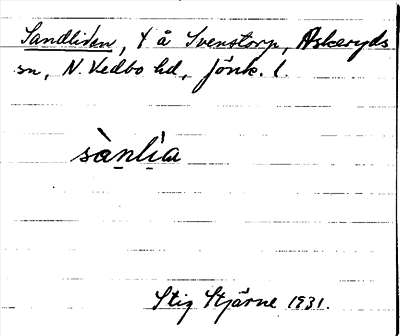 Sandlidan, t å Svenstorp, Askeryds
sn, N. Vedbo hd, Jönk. l.
sàn̠lìa
Stig Stjärne 1931.